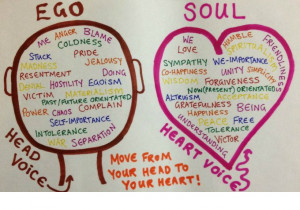 EGO
ME ANGER BLAME
COLDNESS
STACK PRIDE
MADNESS JEALOUSY
RESENTMENT DOING
DENIAL HOSTILITY EGOISM
VICTIM MATERIALISM
PAST/FUTURE ORIENTATED
POWER CHAOS COMPLAIN
SELF-IMPORTANCE
INTOLERANCE
WAR SEPARATION
HEAD VOICE
SOUL
WE HUMBLE
LOVE SPIRITUALISM
FRIENDLINESS
SYMPATHY WE-IMPORTANCE
CO-HAPPINESS UNITY SIMPLICITY
WISDOM FORGIVENESS
NOW (PRESENT) ORIENTATED
ALTRUISM ACCEPTANCE
GRATEFULNESS BEING
HAPPINESS
PEACE FREE
UNDERSTANDING TOLERANCE
VICTOR
HEART VOICE
MOVE FROM
YOUR HEAD TO
YOUR HEART!